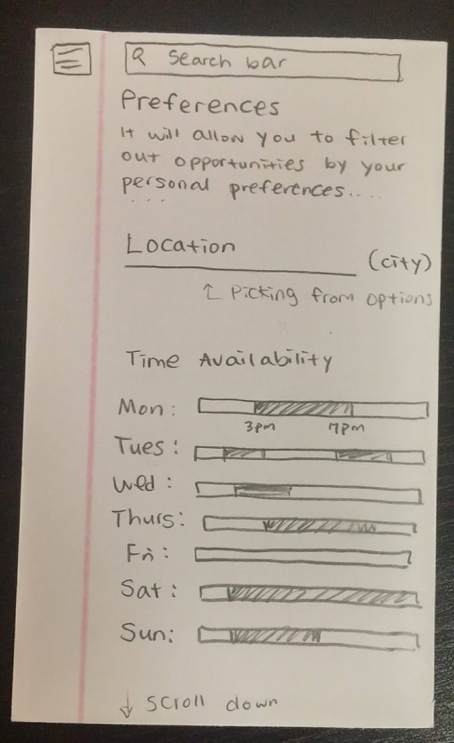 Search bar
Preferences
It will allow you to filter
out opportunities by your
personal preferences....
...
Location
(city)
↑ Picking from options
Time Availability
Mon:
3pm 7pm
Tues:
Wed:
Thurs:
Fri:
Sat:
Sun:
↓ Scroll down